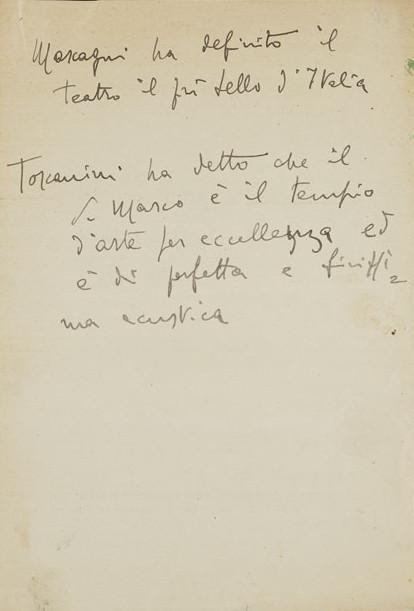 Mascagni ha definito il
teatro il più bello d'Italia
Toscanini ha detto che il
S. Marco è il tempio
d'arte per eccellenza ed
è di perfetta e finissi=
ma acustica